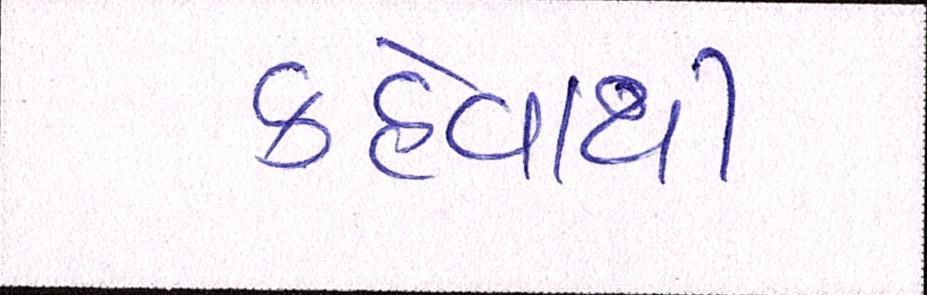 કહેવાથી